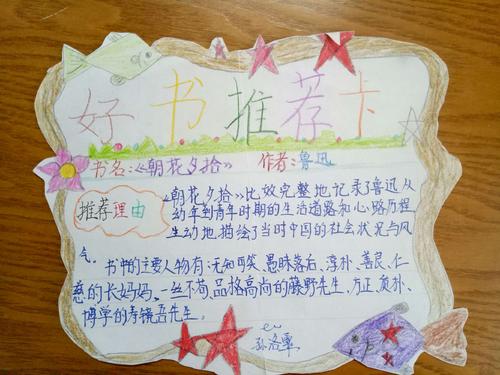 好书推荐卡
书名:《朝花夕拾》 作者:鲁迅
推荐理由
《朝花夕拾》比较完整地记录了鲁迅从
幼年到青年时期的生活道路和心路历程
生动地描绘了当时中国的社会状况与风
气。
书中的主要人物有:无知可笑、愚昧落后、淳朴、善良、仁
慈的长妈妈,一丝不苟、品格高尚的藤野先生,方正、质朴、
博学的寿镜吾先生。
孙洛